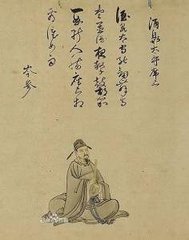 酒泉太守席上
酒泉太守能劍舞高
堂置酒夜擊鼓胡笳
一曲斷人腸座上相
看淚如雨
岑參